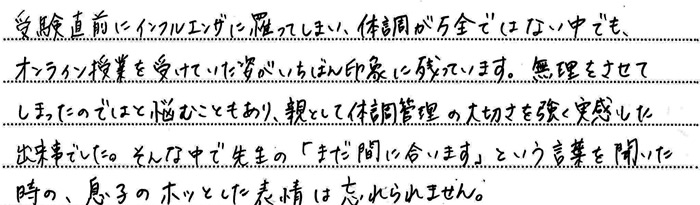 受験直前にインフルエンザに罹ってしまい、体調が万全ではない中でも、
オンライン授業を受けていた姿がいちばん印象に残っています。無理をさせて
しまったのではと悩むこともあり、親として体調管理の大切さを強く実感した
出来事でした。そんな中で先生の「まだ間に合います」という言葉を聞いた
時の、息子のホッとした表情は忘れられません。